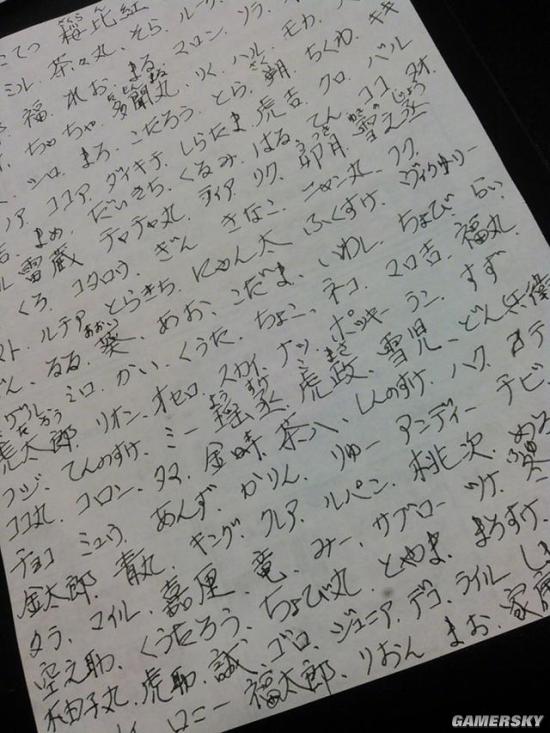 こてつ 筏比紅
ミル、茶々丸、そら、ルーク
福、れお、まる、マロン、ソラ
ちゃちゃ、多聞丸、りく、ハル、モカ
シロ、まろ、こたろう、とら、朔、ちくわ、キキ
ノア、ココア、ダイキチ、しらたま、虎吉、クロ、バル
まめ、だいきち、くるみ、はる、てん、ココ、ナオ
雷蔵、チャチャ丸、ライア、リク、卯月、雪之丞
くろ、コタロウ、ぎん、きなこ、ニャン丸、フク
ルテア、とらきち、にゃん太、ふくすけ、ヴィクトリー
るる、葵、めお、こだま、いわし、ちょび、らい
ミロ、かい、くうた、ちょこ、ネコ、マロ吉、福丸
虎太郎、リオン、オセロ、スカイ、ナツ、ポッキー、ラン、すず
フジ、てんのすけ、ミー、虎政、雪児、どん兵衛
ココ丸、コロン、タマ、金時、茶八、しんのすけ、ハク
チョコ、ミュウ、あんず、かりん、りゅー、アンディー、チビ
金太郎、青丸、キング、クレア、ルパン、桃次
タラ、マイル、嘉厘、竜、みー、サブロー、ツケ、葵
空之助、くうたろう、ちょび丸、とやま、まろすけ
柚子丸、虎助、誠、ゴロ、ジュニア、デコ、ライル
ロニー、福太郎、りおん、まお
GAMERSKY